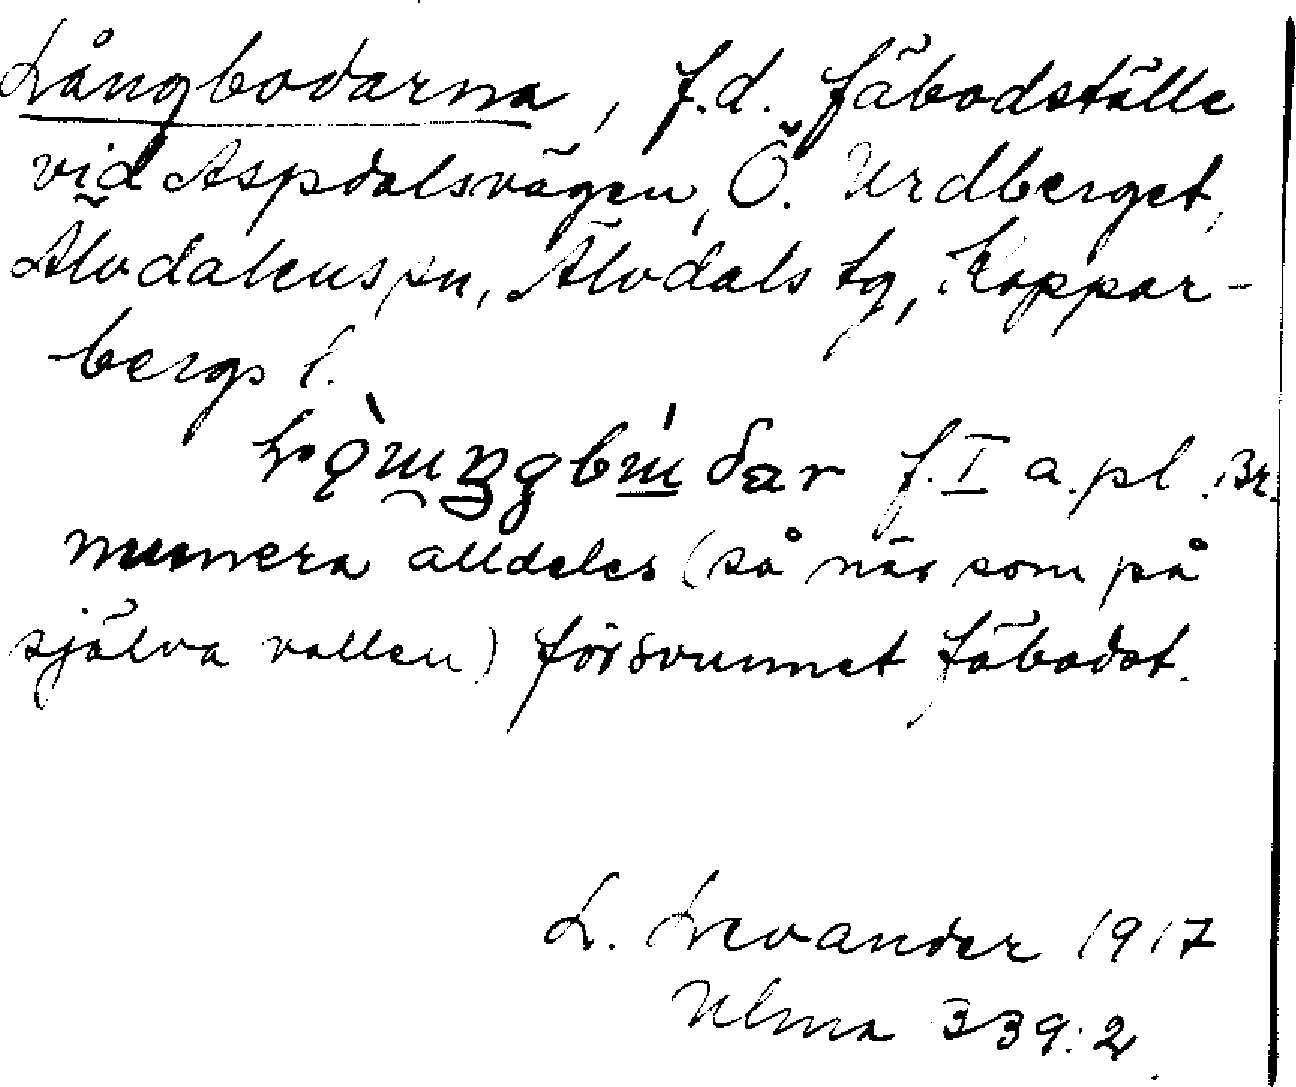 Långbodarna, f.d. fäbodställe
vid Aspdalsvägen, Ö. Urdberget,
Älvdalens sn, Älvdals tg, Koppar-
bergs l.
f. I a. pl. Br.
numera alldeles (så när som på
själva vallen) försvunnet fäbodst.
L. Levander 1917
Ulma 339:2